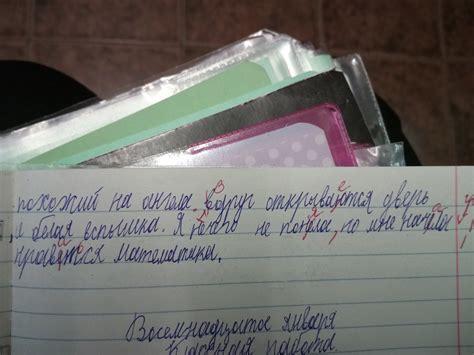 похожий на ангела вдруг открываются дверь
и белая вспышка. Я не понила, но мне
нравется математика.
Восемнадцатое января
Классная работа